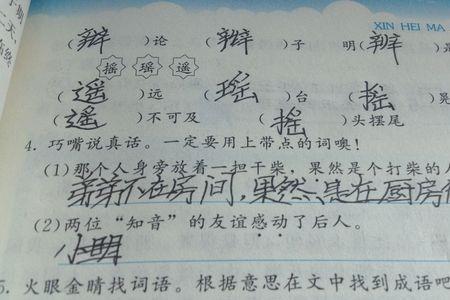 XIN HEI MA
(辩)论 (辫)子 明(辨)是
摇 瑶 遥
(遥)远 (瑶)台 (摇)晃
(遥)不可及 (摇)头摆尾
4. 巧嘴说真话。一定要用上带点的词噢!
(1)那个人身旁放着一担干柴，果然是个打柴的人
芽芽不在房间,果然是在厨房
(2)两位“知音”的友谊感动了后人。
小明
5. 火眼金睛找词语。根据意思在文中找到成语吧